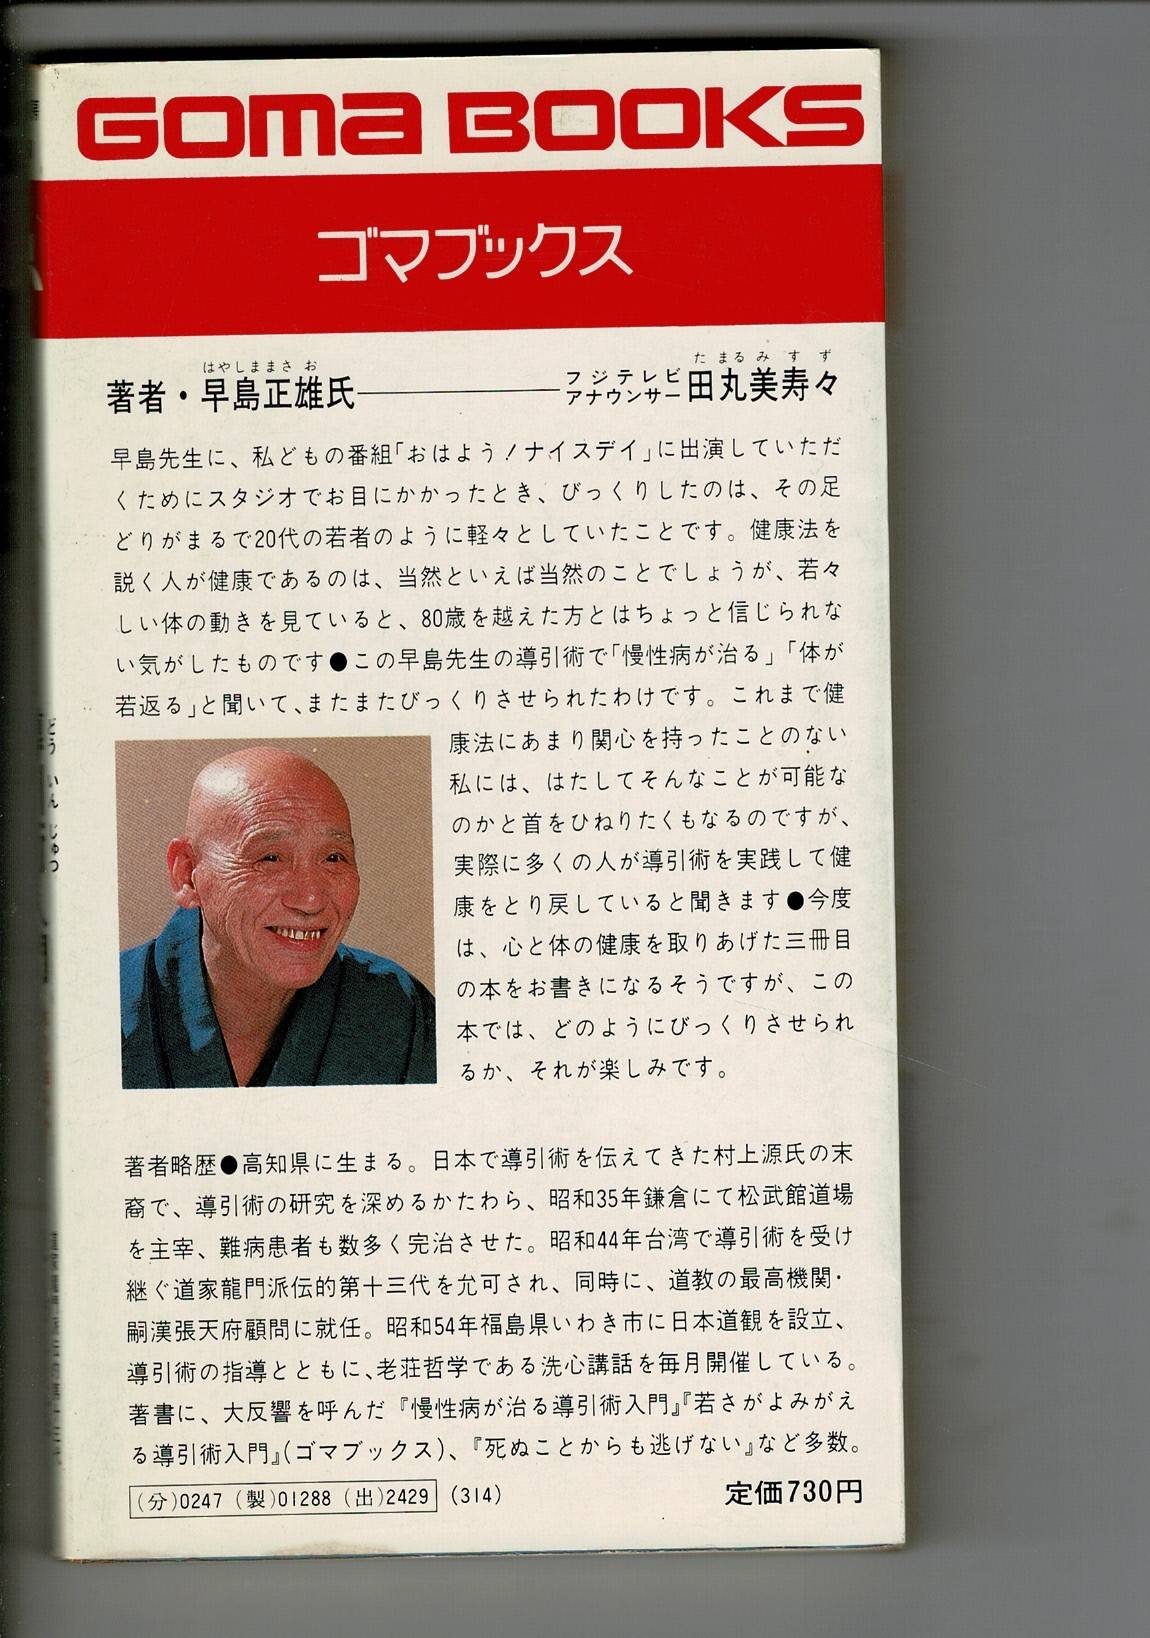 GOMA BOOKS
ゴマブックス
はやしままさ お
著者・早島正雄氏
フジテレビ
アナウンサー
た まる み す ず
田丸美寿々
早島先生に、私どもの番組「おはよう!ナイスデイ」に出演していただ
くためにスタジオでお目にかかったとき、びっくりしたのは、その足
どりがまるで20代の若者のように軽々としていたことです。健康法を
説く人が健康であるのは、当然といえば当然のことでしょうが、若々
しい体の動きを見ていると、80歳を越えた方とはちょっと信じられな
い気がしたものです●この早島先生の導引術で「慢性病が治る」「体が
若返る」と聞いて、またまたびっくりさせられたわけです。これまで健
康法にあまり関心を持ったことのない
私には、はたしてそんなことが可能な
のかと首をひねりたくもなるのですが、
実際に多くの人が導引術を実践して健
康をとり戻していると聞きます●今度
は、心と体の健康を取りあげた三冊目
の本をお書きになるそうですが、この
本では、どのようにびっくりさせられ
るか、それが楽しみです。
著者略歴●高知県に生まる。日本で導引術を伝えてきた村上源氏の末
裔で、導引術の研究を深めるかたわら、昭和35年鎌倉にて松武館道場
を主宰、難病患者も数多く完治させた。昭和44年台湾で導引術を受け
継ぐ道家龍門派伝的第十三代を允可され、同時に、道教の最高機関・
嗣漢張天府顧問に就任。昭和54年福島県いわき市に日本道観を設立、
導引術の指導とともに、老荘哲学である洗心講話を毎月開催している。
著書に、大反響を呼んだ『慢性病が治る導引術入門』『若さがよみがえ
る導引術入門』(ゴマブックス)、『死ぬことからも逃げない』など多数。
(分)0247 (製)01288 (出)2429 (314)
定価730円
どう いん じゅつ